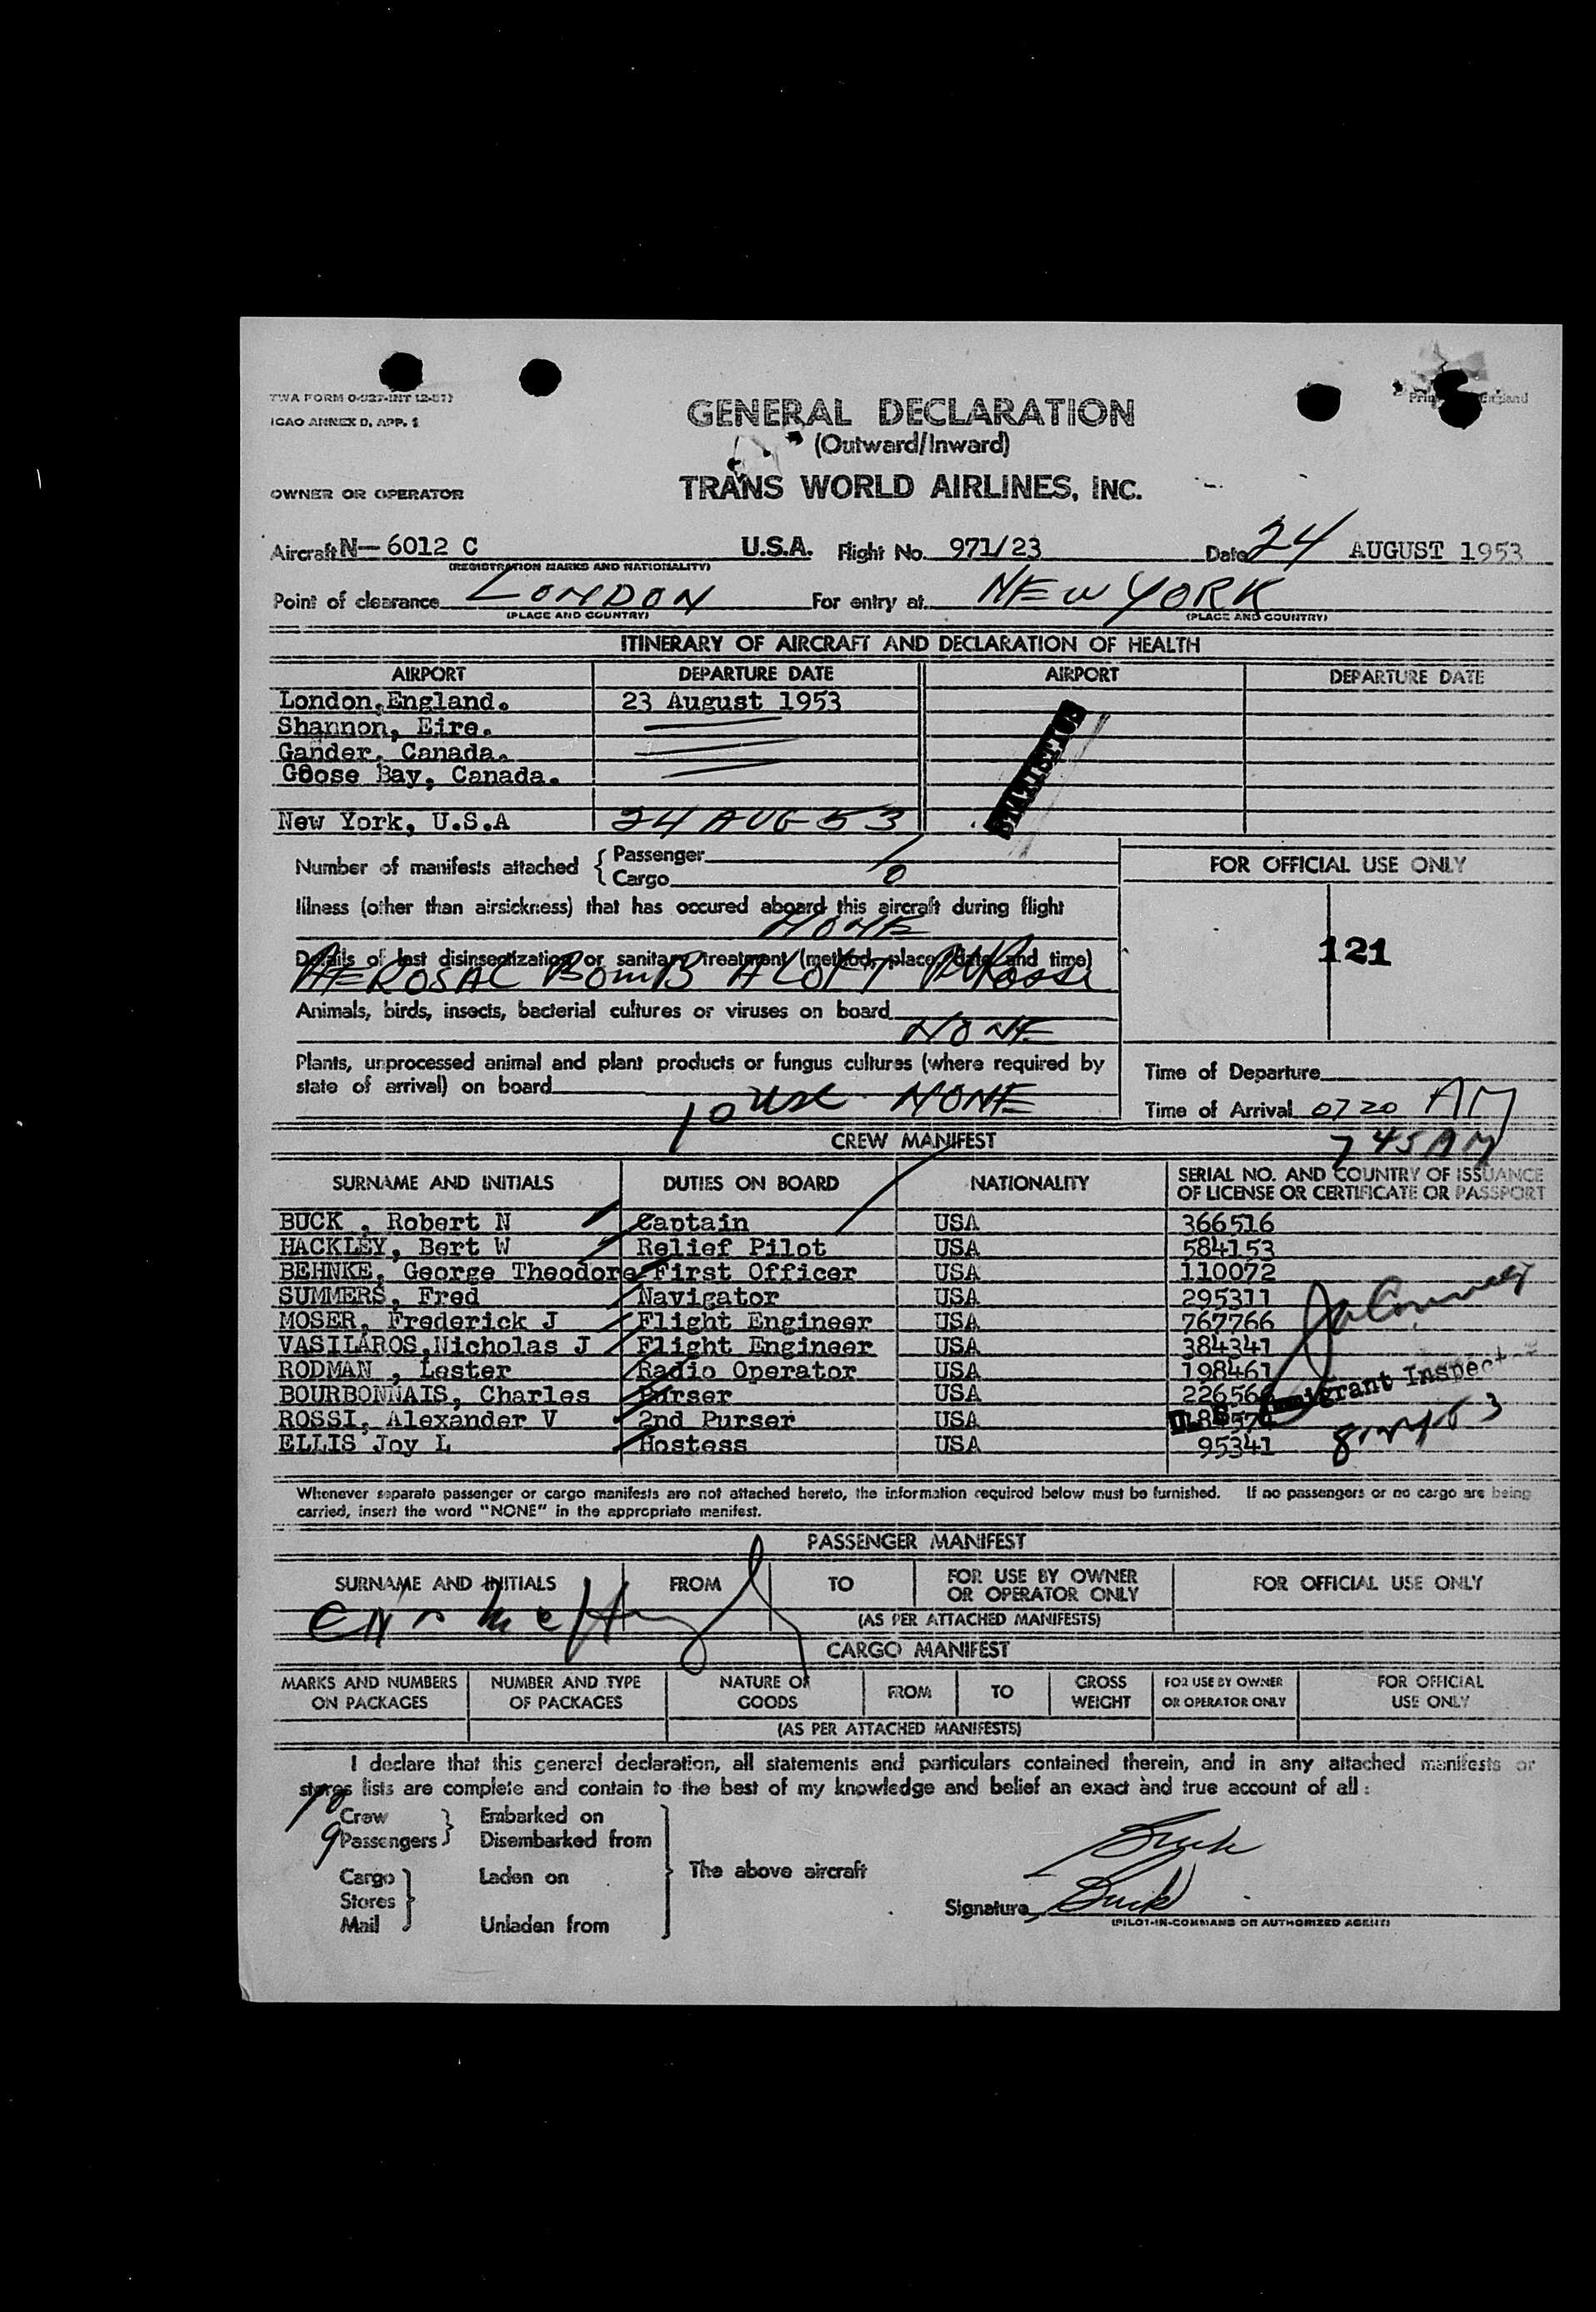 TWA FORM O-927-INT (2-51)
ICAO ANNEX D, APP. 1
GENERAL DECLARATION
(Outward/Inward)
OWNER OR OPERATOR TRANS WORLD AIRLINES, INC.
Aircraft N- 6012 C U.S.A. Flight No. 971/23 Date 24 AUGUST 1953
(REGISTRATION MARKS AND NATIONALITY)
Point of clearance LONDON For entry at NEW YORK
(PLACE AND COUNTRY) (PLACE AND COUNTRY)
ITINERARY OF AIRCRAFT AND DECLARATION OF HEALTH
AIRPORT DEPARTURE DATE AIRPORT DEPARTURE DATE
London,England. 23 August 1953
Shannon, Eire.
Gander, Canada.
Goose Bay, Canada.
STATISTICS
New York, U.S.A 24 AUG 53
Number of manifests attached { Passenger 1
Cargo 0
FOR OFFICIAL USE ONLY
Illness (other than airsickness) that has occured aboard this aircraft during flight
NONE
121
Details of last disinsectization or sanitary treatment (method, place, date and time)
AEROSAL BOMB ALOFT Rossi
Animals, birds, insects, bacterial cultures or viruses on board
NONE
Plants, unprocessed animal and plant products or fungus cultures (where required by
state of arrival) on board
NONE
Time of Departure
Time of Arrival 0720 AM
10 USC
745 AM
CREW MANIFEST
SURNAME AND INITIALS DUTIES ON BOARD NATIONALITY SERIAL NO. AND COUNTRY OF ISSUANCE
OF LICENSE OR CERTIFICATE OR PASSPORT
BUCK , Robert N Captain USA 366516
HACKLEY, Bert W Relief Pilot USA 584153
BEHNKE, George Theodore First Officer USA 110072
SUMMERS, Fred Navigator USA 295311
MOSER, Frederick J Flight Engineer USA 767766
VASILAROS,Nicholas J Flight Engineer USA 384341
RODMAN , Lester Radio Operator USA 198461
BOURBONNAIS, Charles Purser USA
ROSSI, Alexander V 2nd Purser USA
ELLIS Joy L Hostess USA 95341
U. S. Immigrant Inspector
Whenever separate passenger or cargo manifests are not attached hereto, the information required below must be furnished. If no passengers or no cargo are being
carried, insert the word "NONE" in the appropriate manifest.
PASSENGER MANIFEST
SURNAME AND INITIALS FROM TO FOR USE BY OWNER
OR OPERATOR ONLY FOR OFFICIAL USE ONLY
(AS PER ATTACHED MANIFESTS)
CARGO MANIFEST
MARKS AND NUMBERS
ON PACKAGES NUMBER AND TYPE
OF PACKAGES NATURE OF
GOODS FROM TO GROSS
WEIGHT FOR USE BY OWNER
OR OPERATOR ONLY FOR OFFICIAL
USE ONLY
(AS PER ATTACHED MANIFESTS)
I declare that this general declaration, all statements and particulars contained therein, and in any attached manifests or
stores lists are complete and contain to the best of my knowledge and belief an exact and true account of all :
10 Crew } Embarked on
9 Passengers } Disembarked from
The above aircraft
Cargo } Laden on
Stores
Mail } Unladen from
Buck
Signature Buck
(PILOT-IN-COMMAND OR AUTHORIZED AGENT)